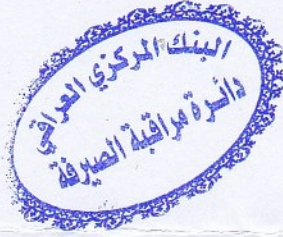 البنك المركزي العراقي
دائرة مراقبة الصيرفة